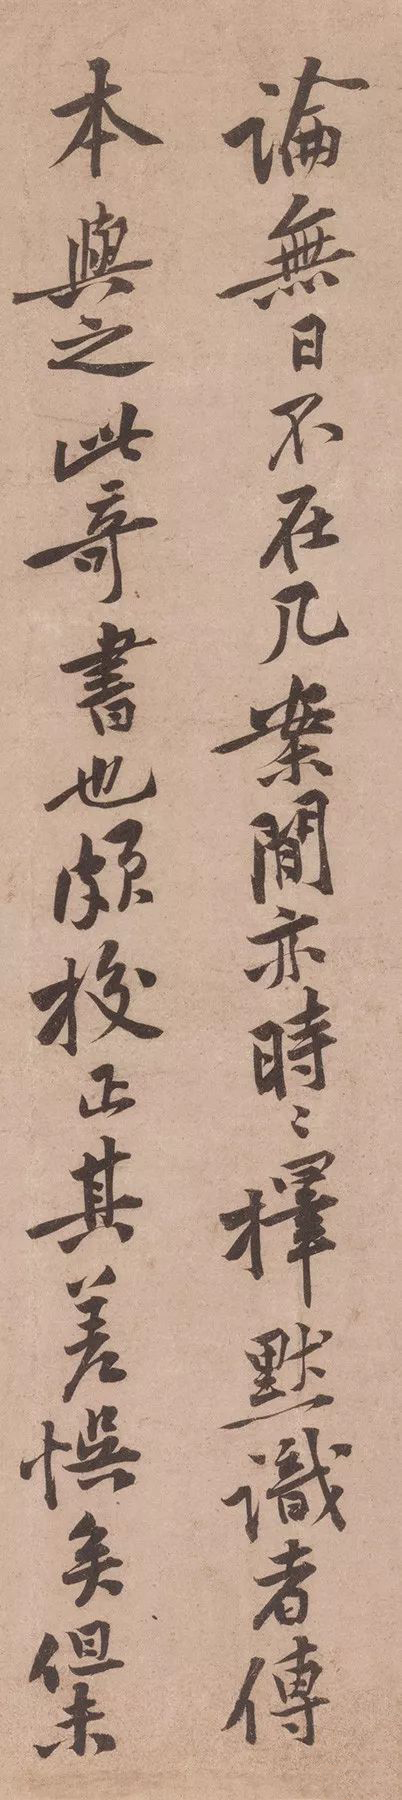 論無日不在几案間亦時〻擇默識者傳
本與之此奇書也頗校正其差悞矣但未